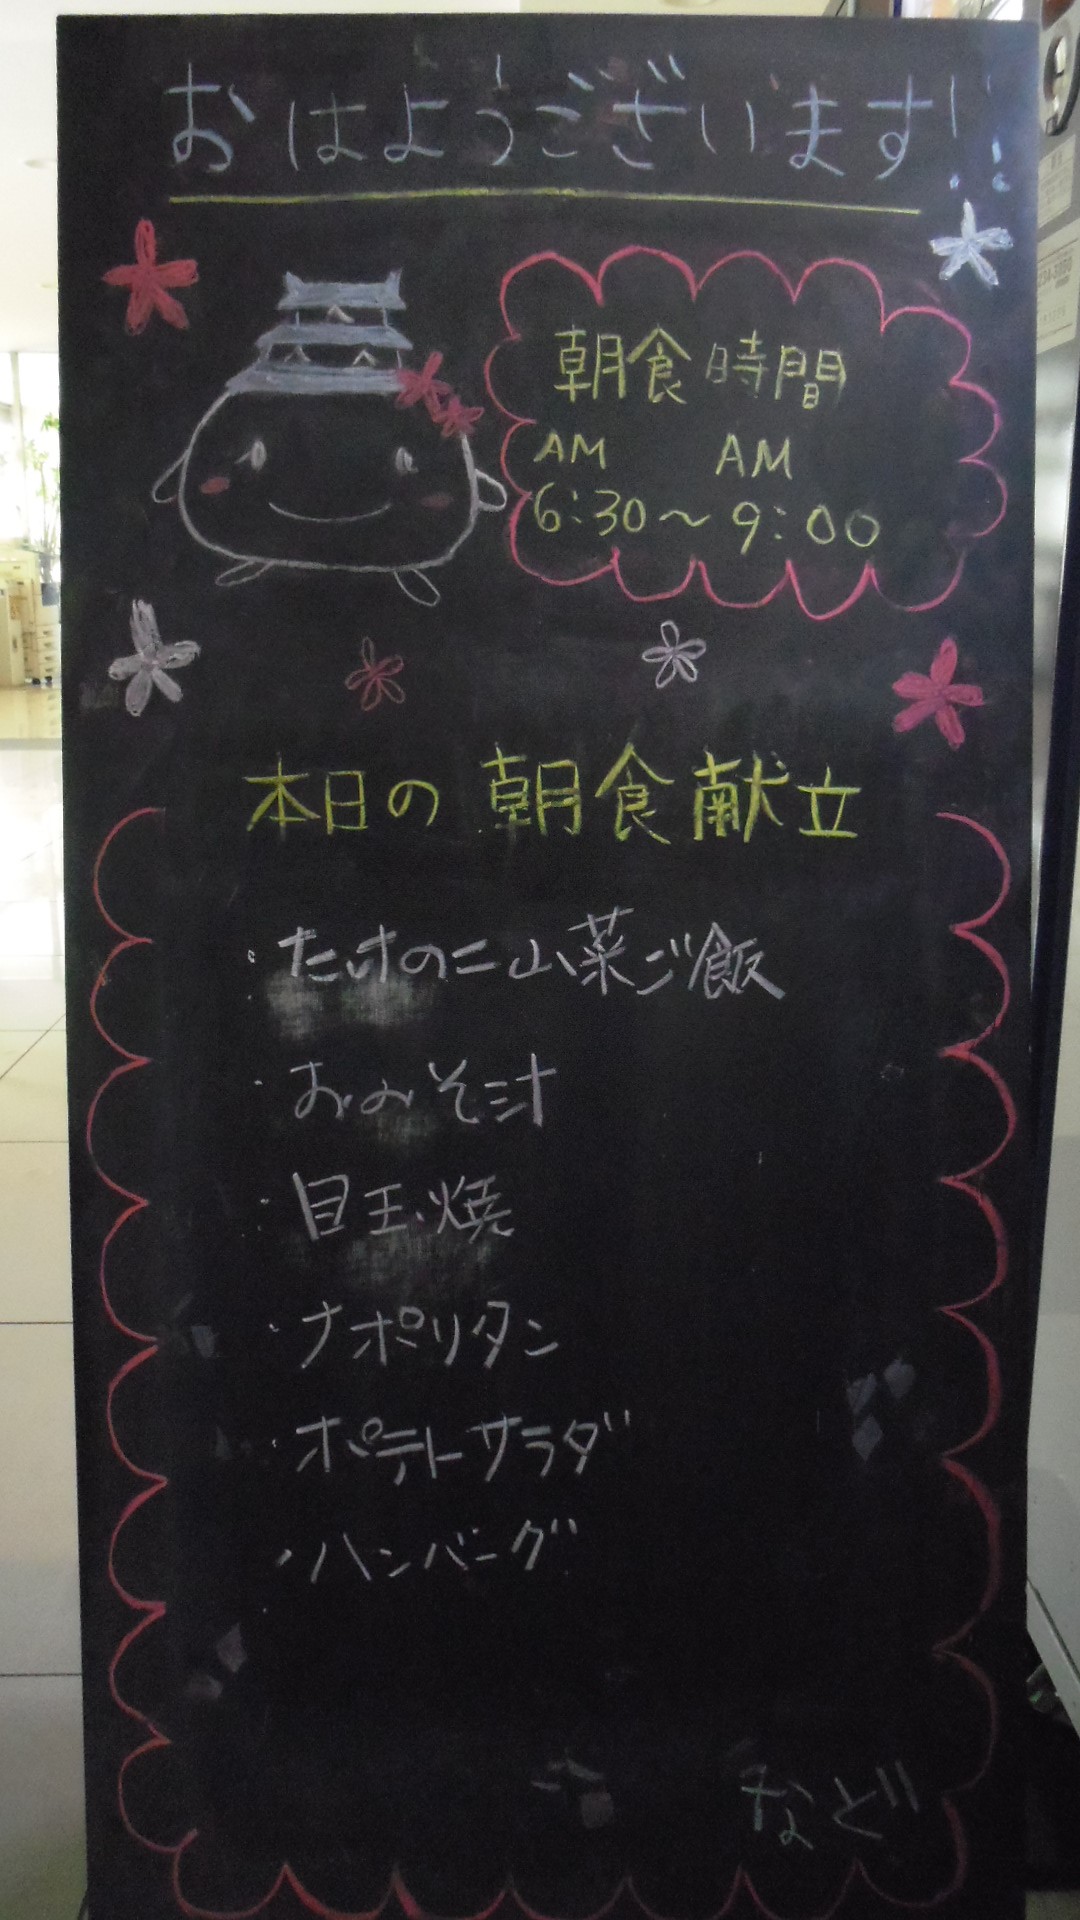 おはようございます!!
朝食時間
AM AM
6:30〜9:00
本日の朝食献立
・たけのこ山菜ご飯
・おみそ汁
・目玉焼
・ナポリタン
・ポテトサラダ
・ハンバーグ
など